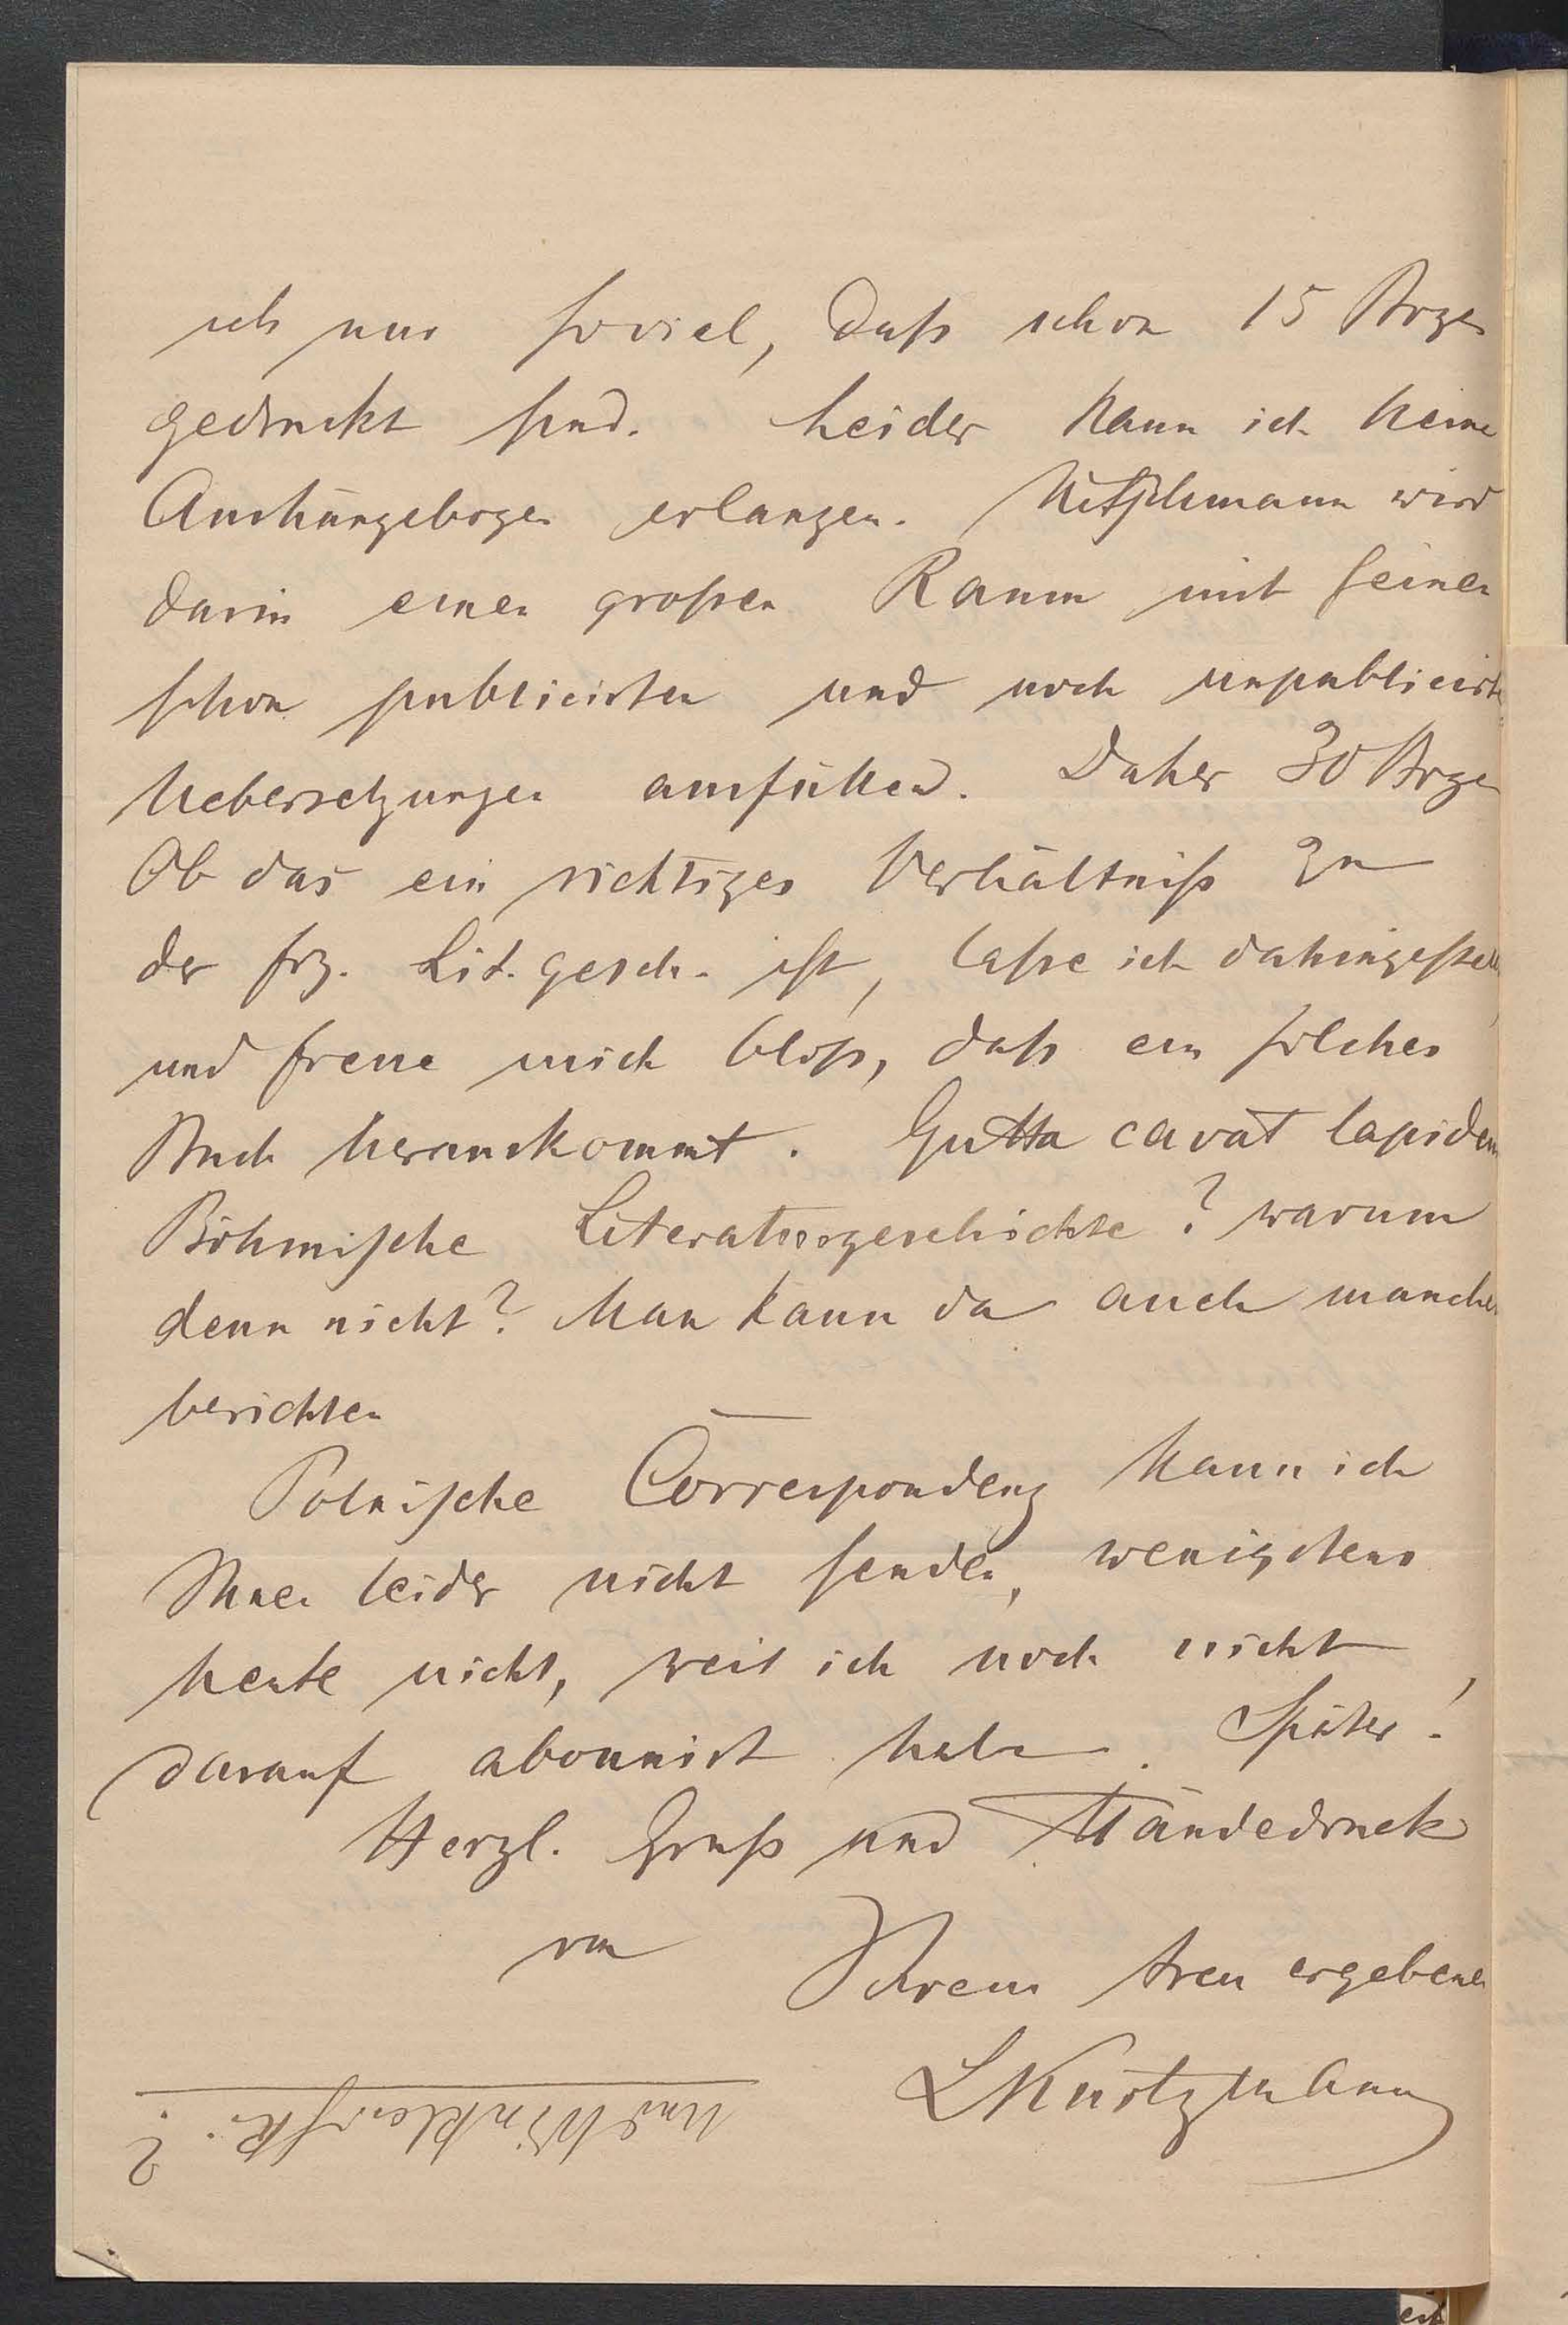 ich nur soviel, daß schon 15 Bogen
gedruckt sind. Leider kann ich keine
Aushängebogen erlangen. Nitschmann wird
darin einen großen Raum mit seinen
schon publicirten und noch unpublicirten
Uebersetzungen ausfüllen. Daher 30 Bogen
Ob das ein richtiges Verhältniß zu
der frz. Lit. gesch. ist, laße ich dahingestellt,
und freue mich bloß, daß ein solches
Buch herauskommt. Gutta cavat lapidem
Böhmische Literaturgeschichte? warum
denn nicht? Man kann da auch manches
berichten
Polnische Correspondenz kann ich
Ihnen leider nicht senden, wenigstens
heute nicht, weil ich noch nicht
darauf abonnirt habe. Später!
Herzl. Gruß und Händedruck
von Ihrem treu ergebenen
LKurtzmann
Und
?